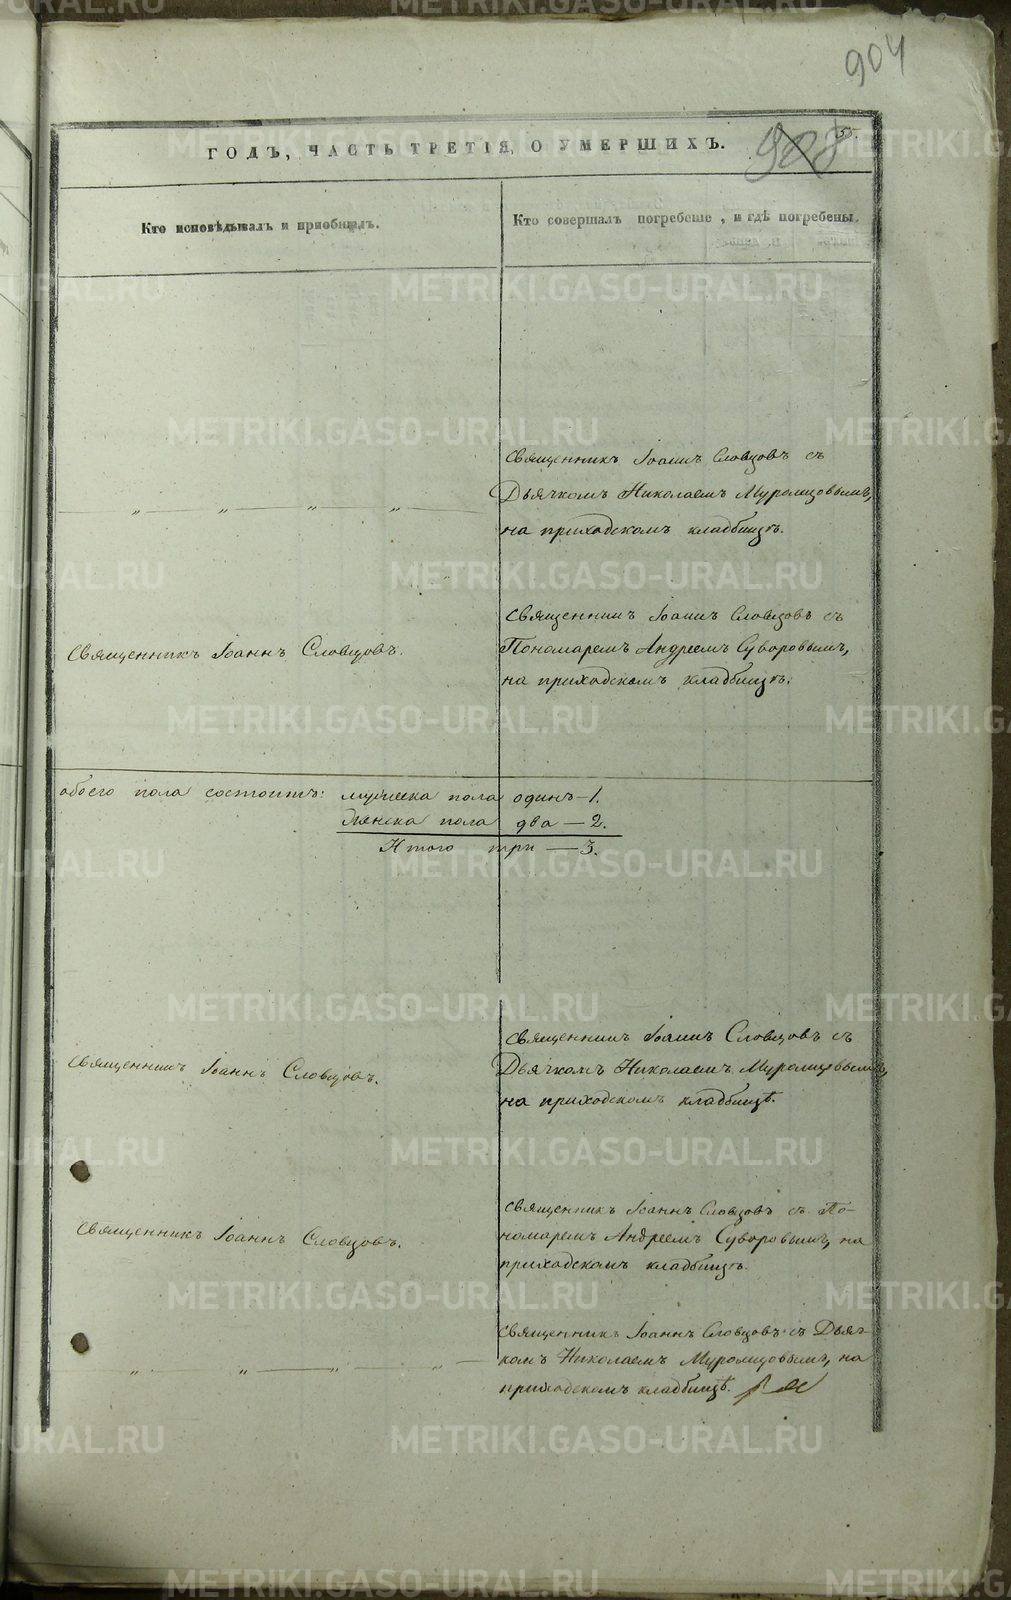 904
ГОДЪ, ЧАСТЬ ТРЕТІЯ, О УМЕРШИХЪ.
908
Кто исповѣдывалъ и пріобщалъ.
Кто совершалъ погребеніе, и гдѣ погребены.
Священникъ Іоаннъ Словцовъ съ
Дьячкомъ Николаемъ Муромцовымъ,
на приходскомъ кладбищѣ.
„ — „ — „ — „ —
Священникъ Іоаннъ Словцовъ.
Священникъ Іоаннъ Словцовъ съ
Пономаремъ Андреемъ Суворовымъ,
на приходскомъ кладбищѣ.
обоего пола состоитъ: мужеска пола одинъ — 1.
Женска пола два — 2.
Итого три — 3.
Священникъ Іоаннъ Словцовъ.
Священникъ Іоаннъ Словцовъ съ
Дьячкомъ Николаемъ Муромцовымъ,
на приходскомъ кладбищѣ.
Священникъ Іоаннъ Словцовъ.
Священникъ Іоаннъ Словцовъ съ По-
номаремъ Андреемъ Суворовымъ, на
приходскомъ кладбищѣ.
„ — „ — „ —
Священникъ Іоаннъ Словцовъ съ Дьяч-
комъ Николаемъ Муромцовымъ, на
приходскомъ кладбищѣ.
METRIKI.GASO-URAL.RU